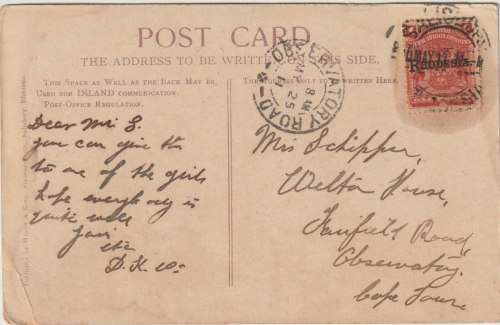 POST CARD
THE ADDRESS TO BE WRITTEN ON THIS SIDE.
THIS SPACE AS WELL AS THE BACK MAY BE
USED FOR INLAND COMMUNICATION.
POST-OFFICE REGULATION.
WRITTEN HERE.
OBSERVATORY ROAD
MY 25
RHODESIA
Dear Mrs S.
you can give this
to one of the girls
hope everybody is
quite well
D.K.
Mrs Schipper,
Welton House,
Fairfield Road,
Observatory,
Cape Town